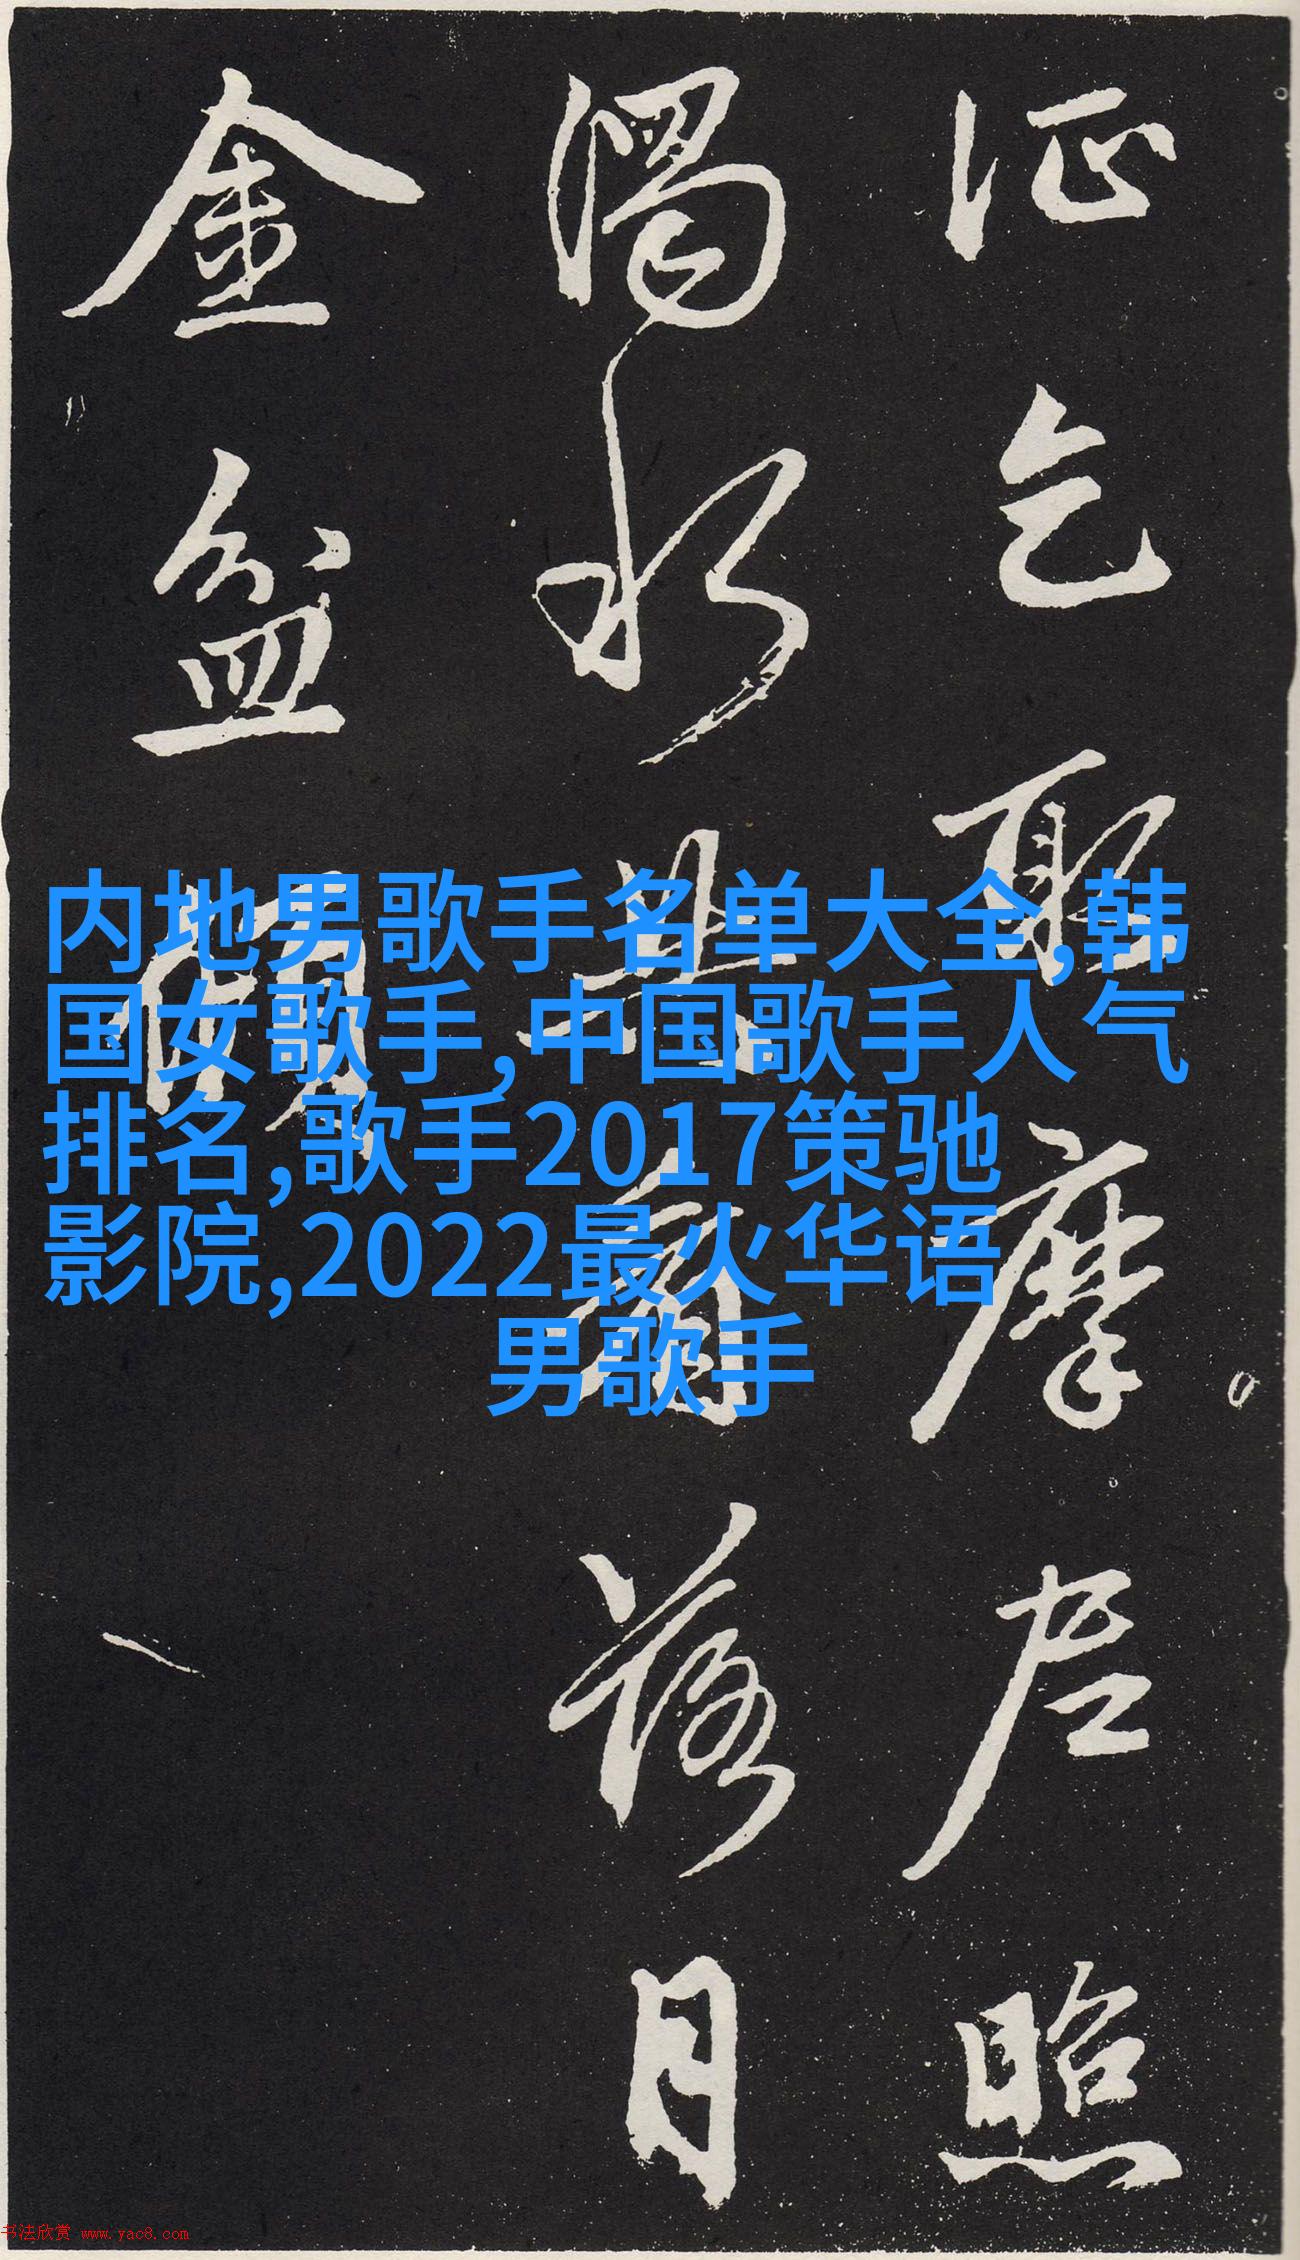 乞摩照
濁水共落日
金盆
内地男歌手名单大全,韩
国女歌手,中国歌手人气
排名,歌手2017策驰
影院,2022最火华语
男歌手
书法欣赏 www.yac8.com